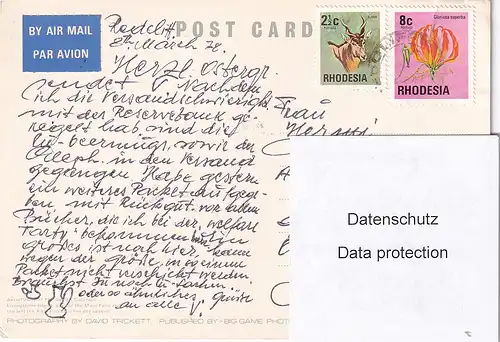 BY AIR MAIL
PAR AVION
POST CARD
2½c
RHODESIA
8c
Gloriosa superba
RHODESIA
Redcliff
März 78.
Herzl. Ostergr.
sendet V. Nachdem
ich die Versandschwierigk.
mit der Reservebank ge-
regelt hab, sind die
sowie der
Eleph. in den Versand
gegangen. Habe gestern
ein weiteres Paket aufgege-
ben mit Rückgut. vor allem
Bücher, die ich bei der welfare
Party bekommen
Großes ist noch hier, kann
wegen der Größe in
Paket nicht verschickt werden
Brauchst Du noch
oder so ähnliches. Grüße
an alle V.
Frau
Datenschutz
Data protection
PHOTOGRAPHY BY DAVID TRICKETT
PUBLISHED BY BIG GAME PHOT